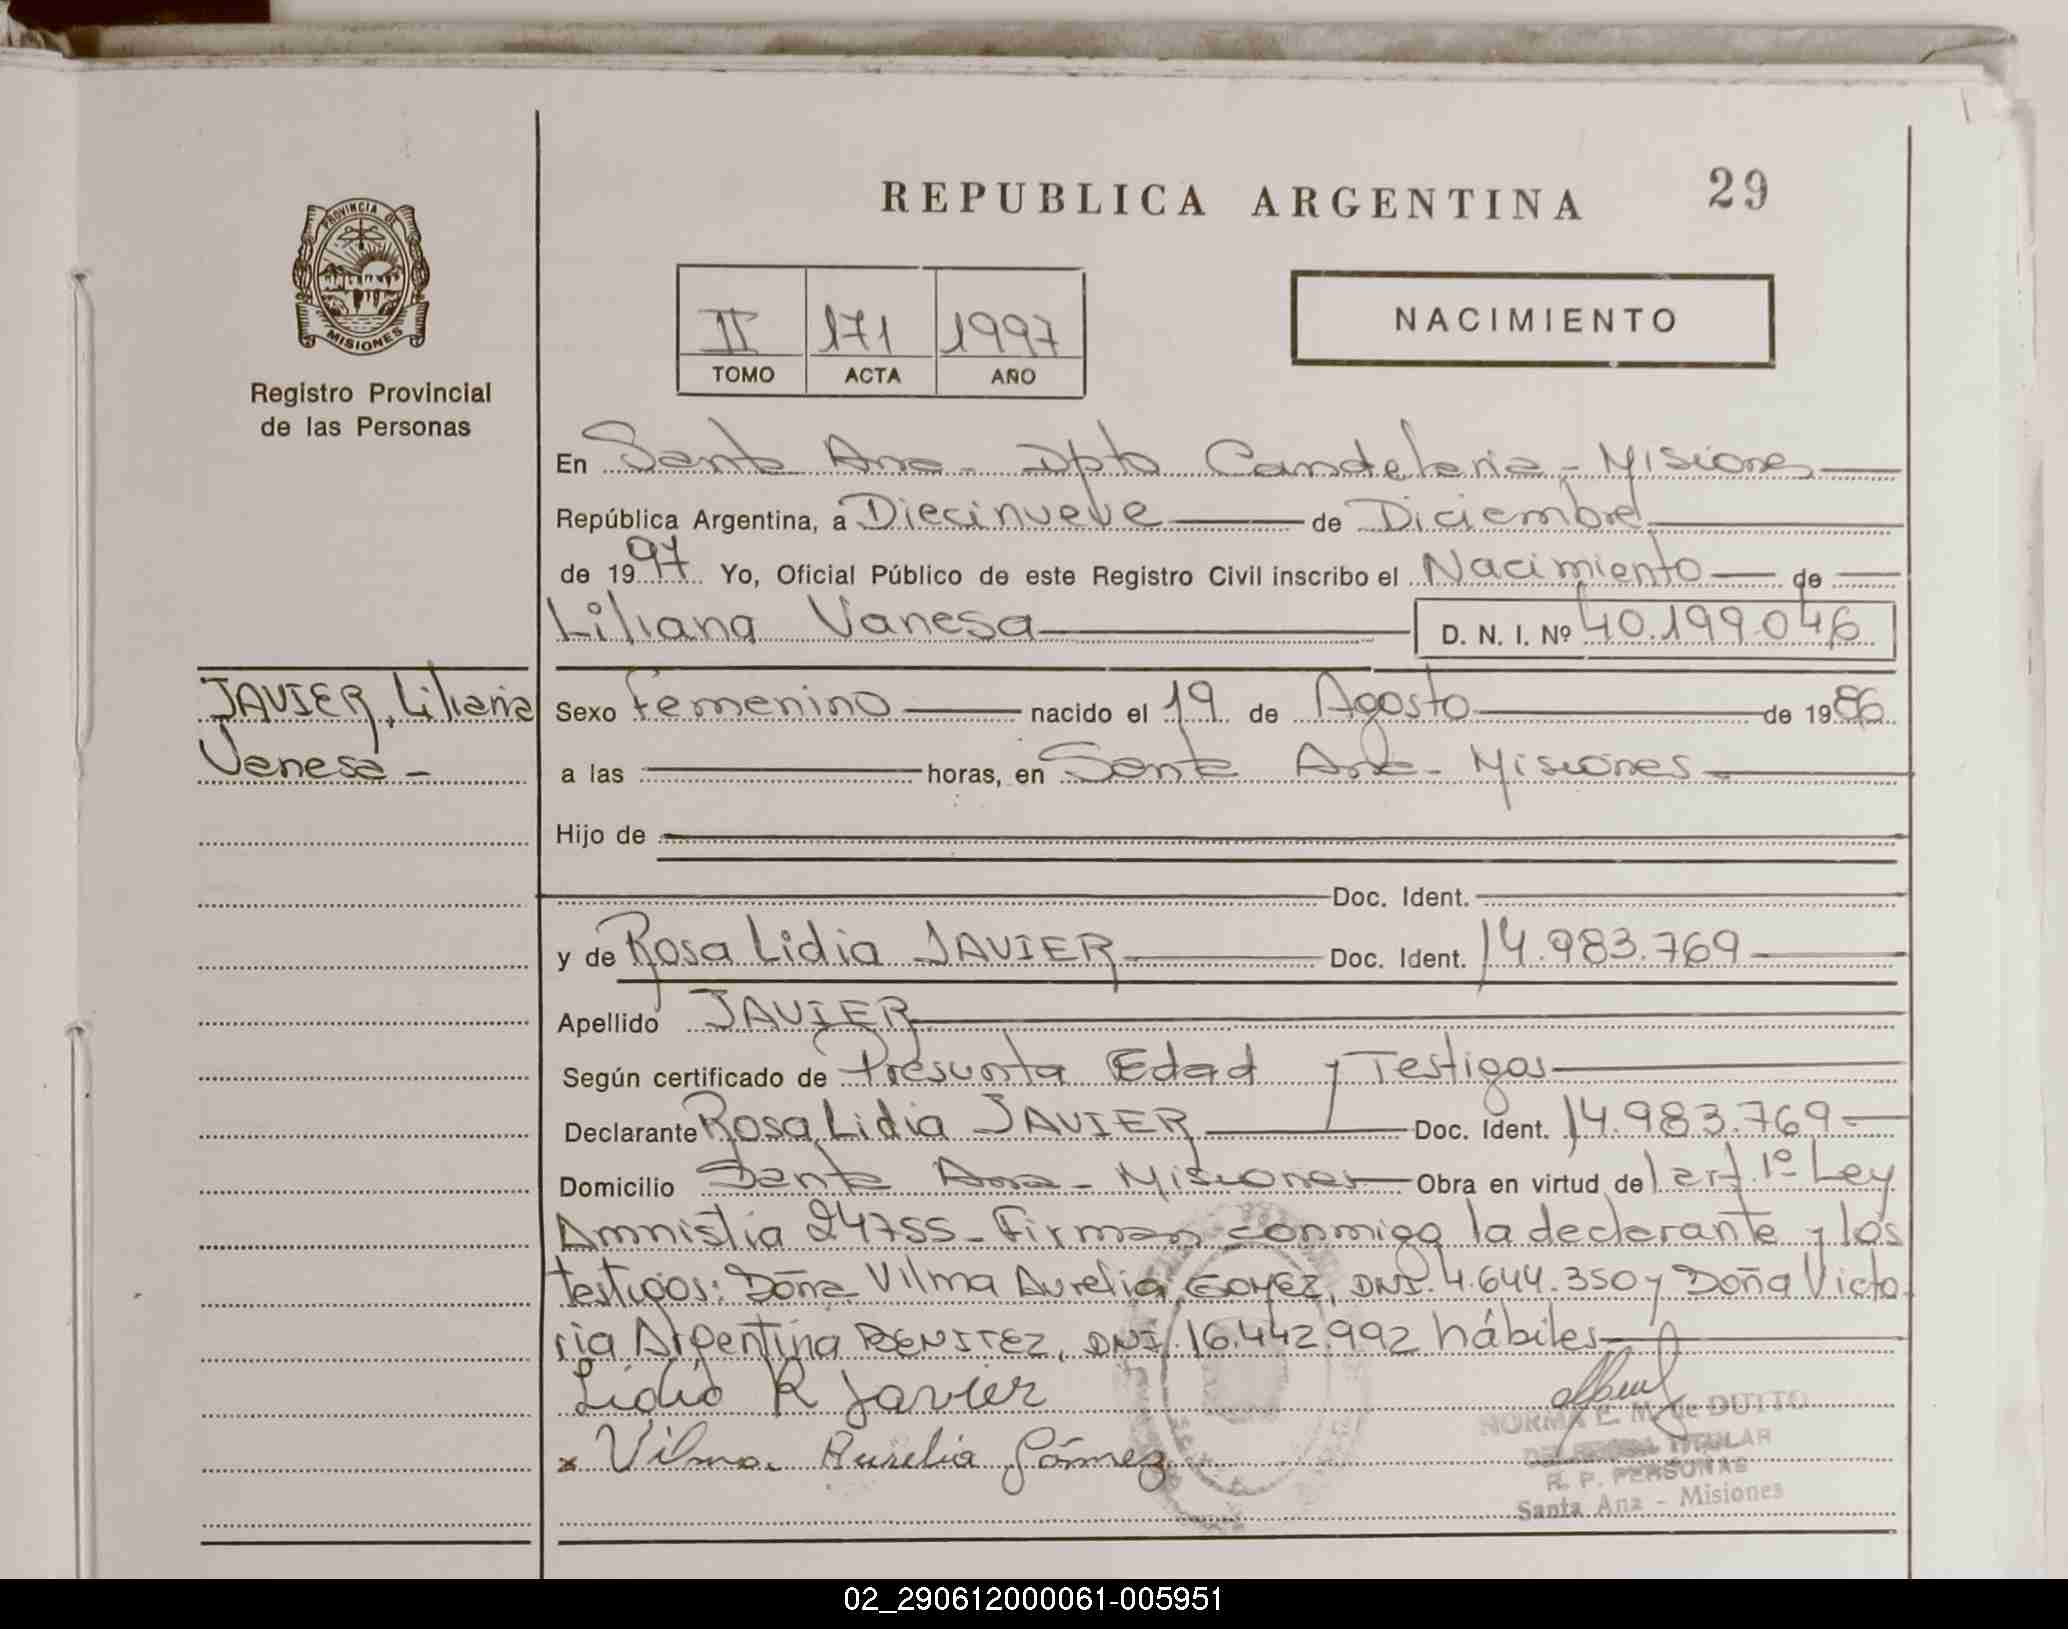 REPUBLICA ARGENTINA
29
PROVINCIA DE
MISIONES
Registro Provincial
de las Personas
II 171 1997
TOMO ACTA AÑO
NACIMIENTO
En Santa Ana - Dpto Candelaria - Misiones
República Argentina, a Diecinueve de Diciembre
de 1997 Yo, Oficial Público de este Registro Civil inscribo el Nacimiento de
Liliana Vanesa D. N. I. Nº 40.199.046
JAVIER, Liliana
Vanesa -
Sexo Femenino nacido el 19 de Agosto de 1986
a las horas, en Santa Ana - Misiones
Hijo de
Doc. Ident.
y de Rosa Lidia JAVIER Doc. Ident. 14.983.769
Apellido JAVIER
Según certificado de Presunta Edad y Testigos
Declarante Rosa Lidia JAVIER Doc. Ident. 14.983.769
Domicilio Santa Ana - Misiones Obra en virtud de art. 1º Ley
Amnistia 24755 - Firman conmigo la declarante y los
testigos: Doña Vilma Aurelia GOMEZ, DNI. 4.644.350 y Doña Victo
ria Argentina BENITEZ, DNI. 16.442.992 hábiles
Lidia R Javier
x Vilma Aurelia Gómez
NORMA E. M. de DUTTO
TITULAR
R. P. PERSONAS
Santa Ana - Misiones
02_290612000061-005951